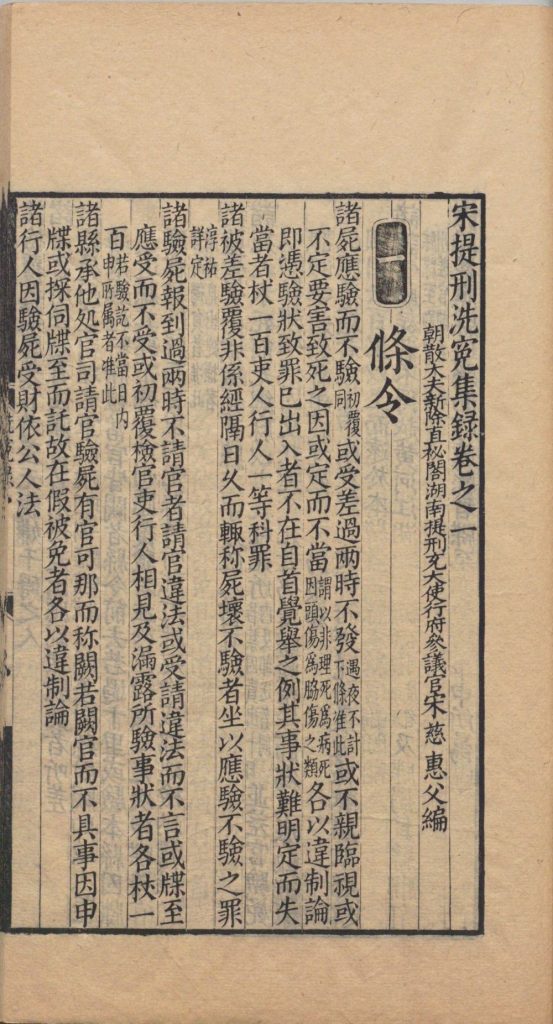 宋提刑洗冤集録卷之一
朝散大夫新除直秘閣湖南提刑充大使行府參議官宋慈惠父編
一 條令
諸屍應驗而不驗初覆同或受差過兩時不發遇夜不計下條准此或不親臨視或
不定要害致死之因或定而不當謂以非理死爲病死因頭傷爲脇傷之類各以違制論
即憑驗狀致罪已出入者不在自首覺舉之例其事狀難明定而失
當者杖一百吏人行人一等科罪
諸被差驗覆非係經隔日久而輙称屍壞不驗者坐以應驗不驗之罪
淳祐詳定
諸驗屍報到過兩時不請官者請官違法或受請違法而不言或牒至
應受而不受或初覆檢官吏行人相見及漏露所驗事狀者各杖一
百若驗訖不當日内申所属者准此
諸縣承他処官司請官驗屍有官可那而称闕若闕官而不具事因申
牒或探伺牒至而託故在假被免者各以違制論
諸行人因驗屍受財依公人法